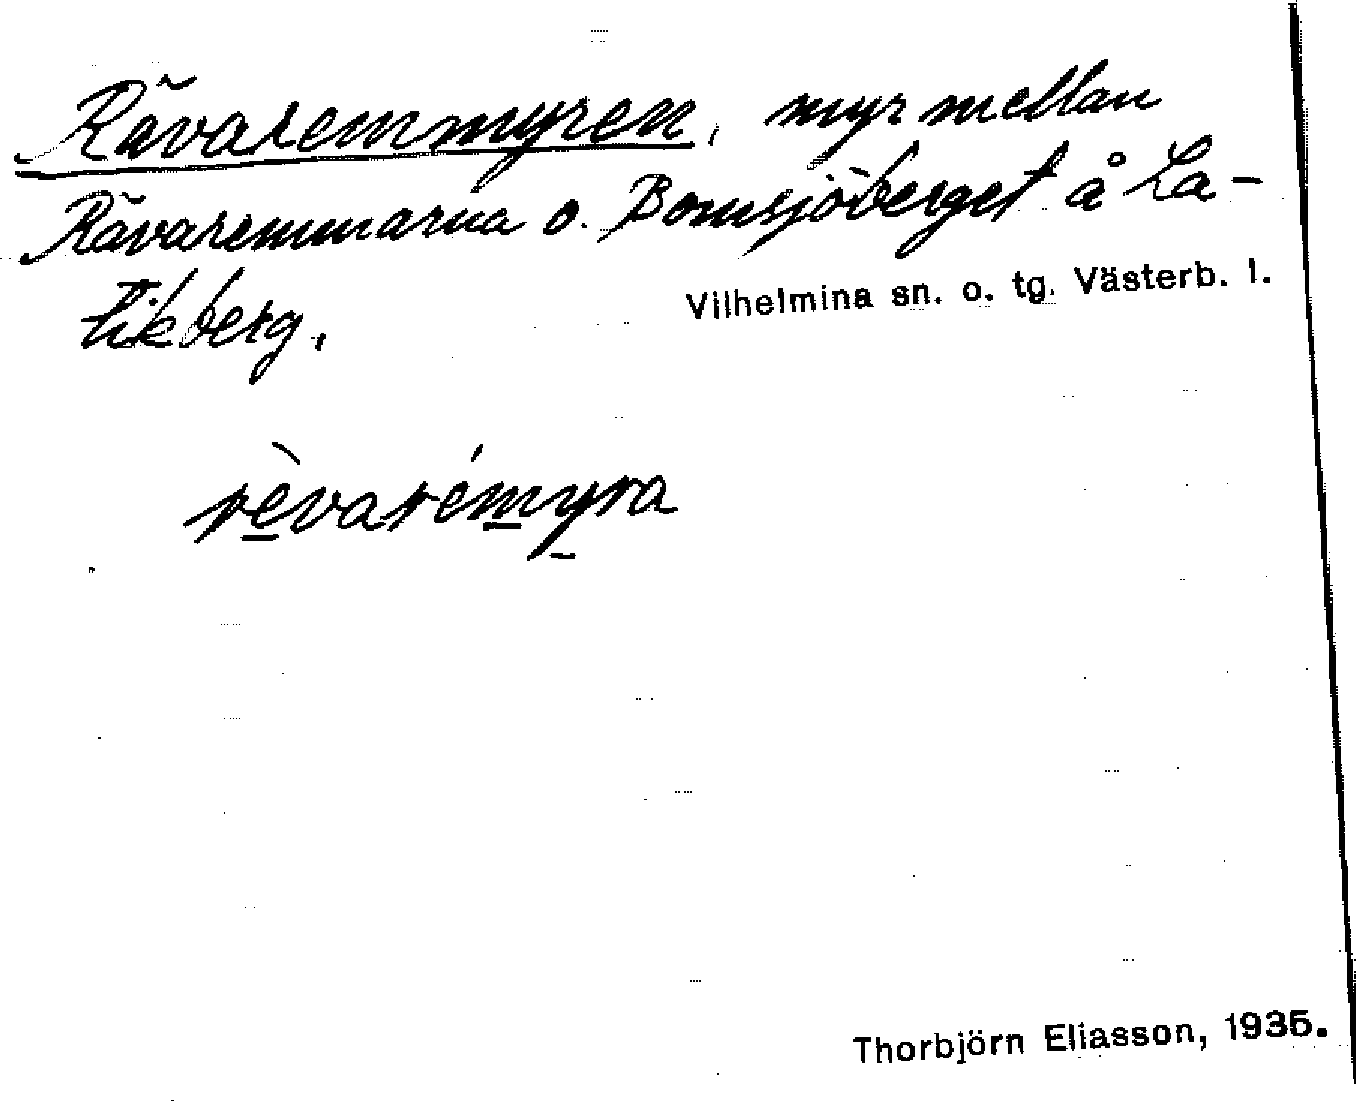 Rävaremmyren, myr mellan
Rävaremmarna o. Bomsjöberget å La-
tikberg.
Vilhelmina sn. o. tg. Västerb. l.
rèvarémyra
Thorbjörn Eliasson, 1935.